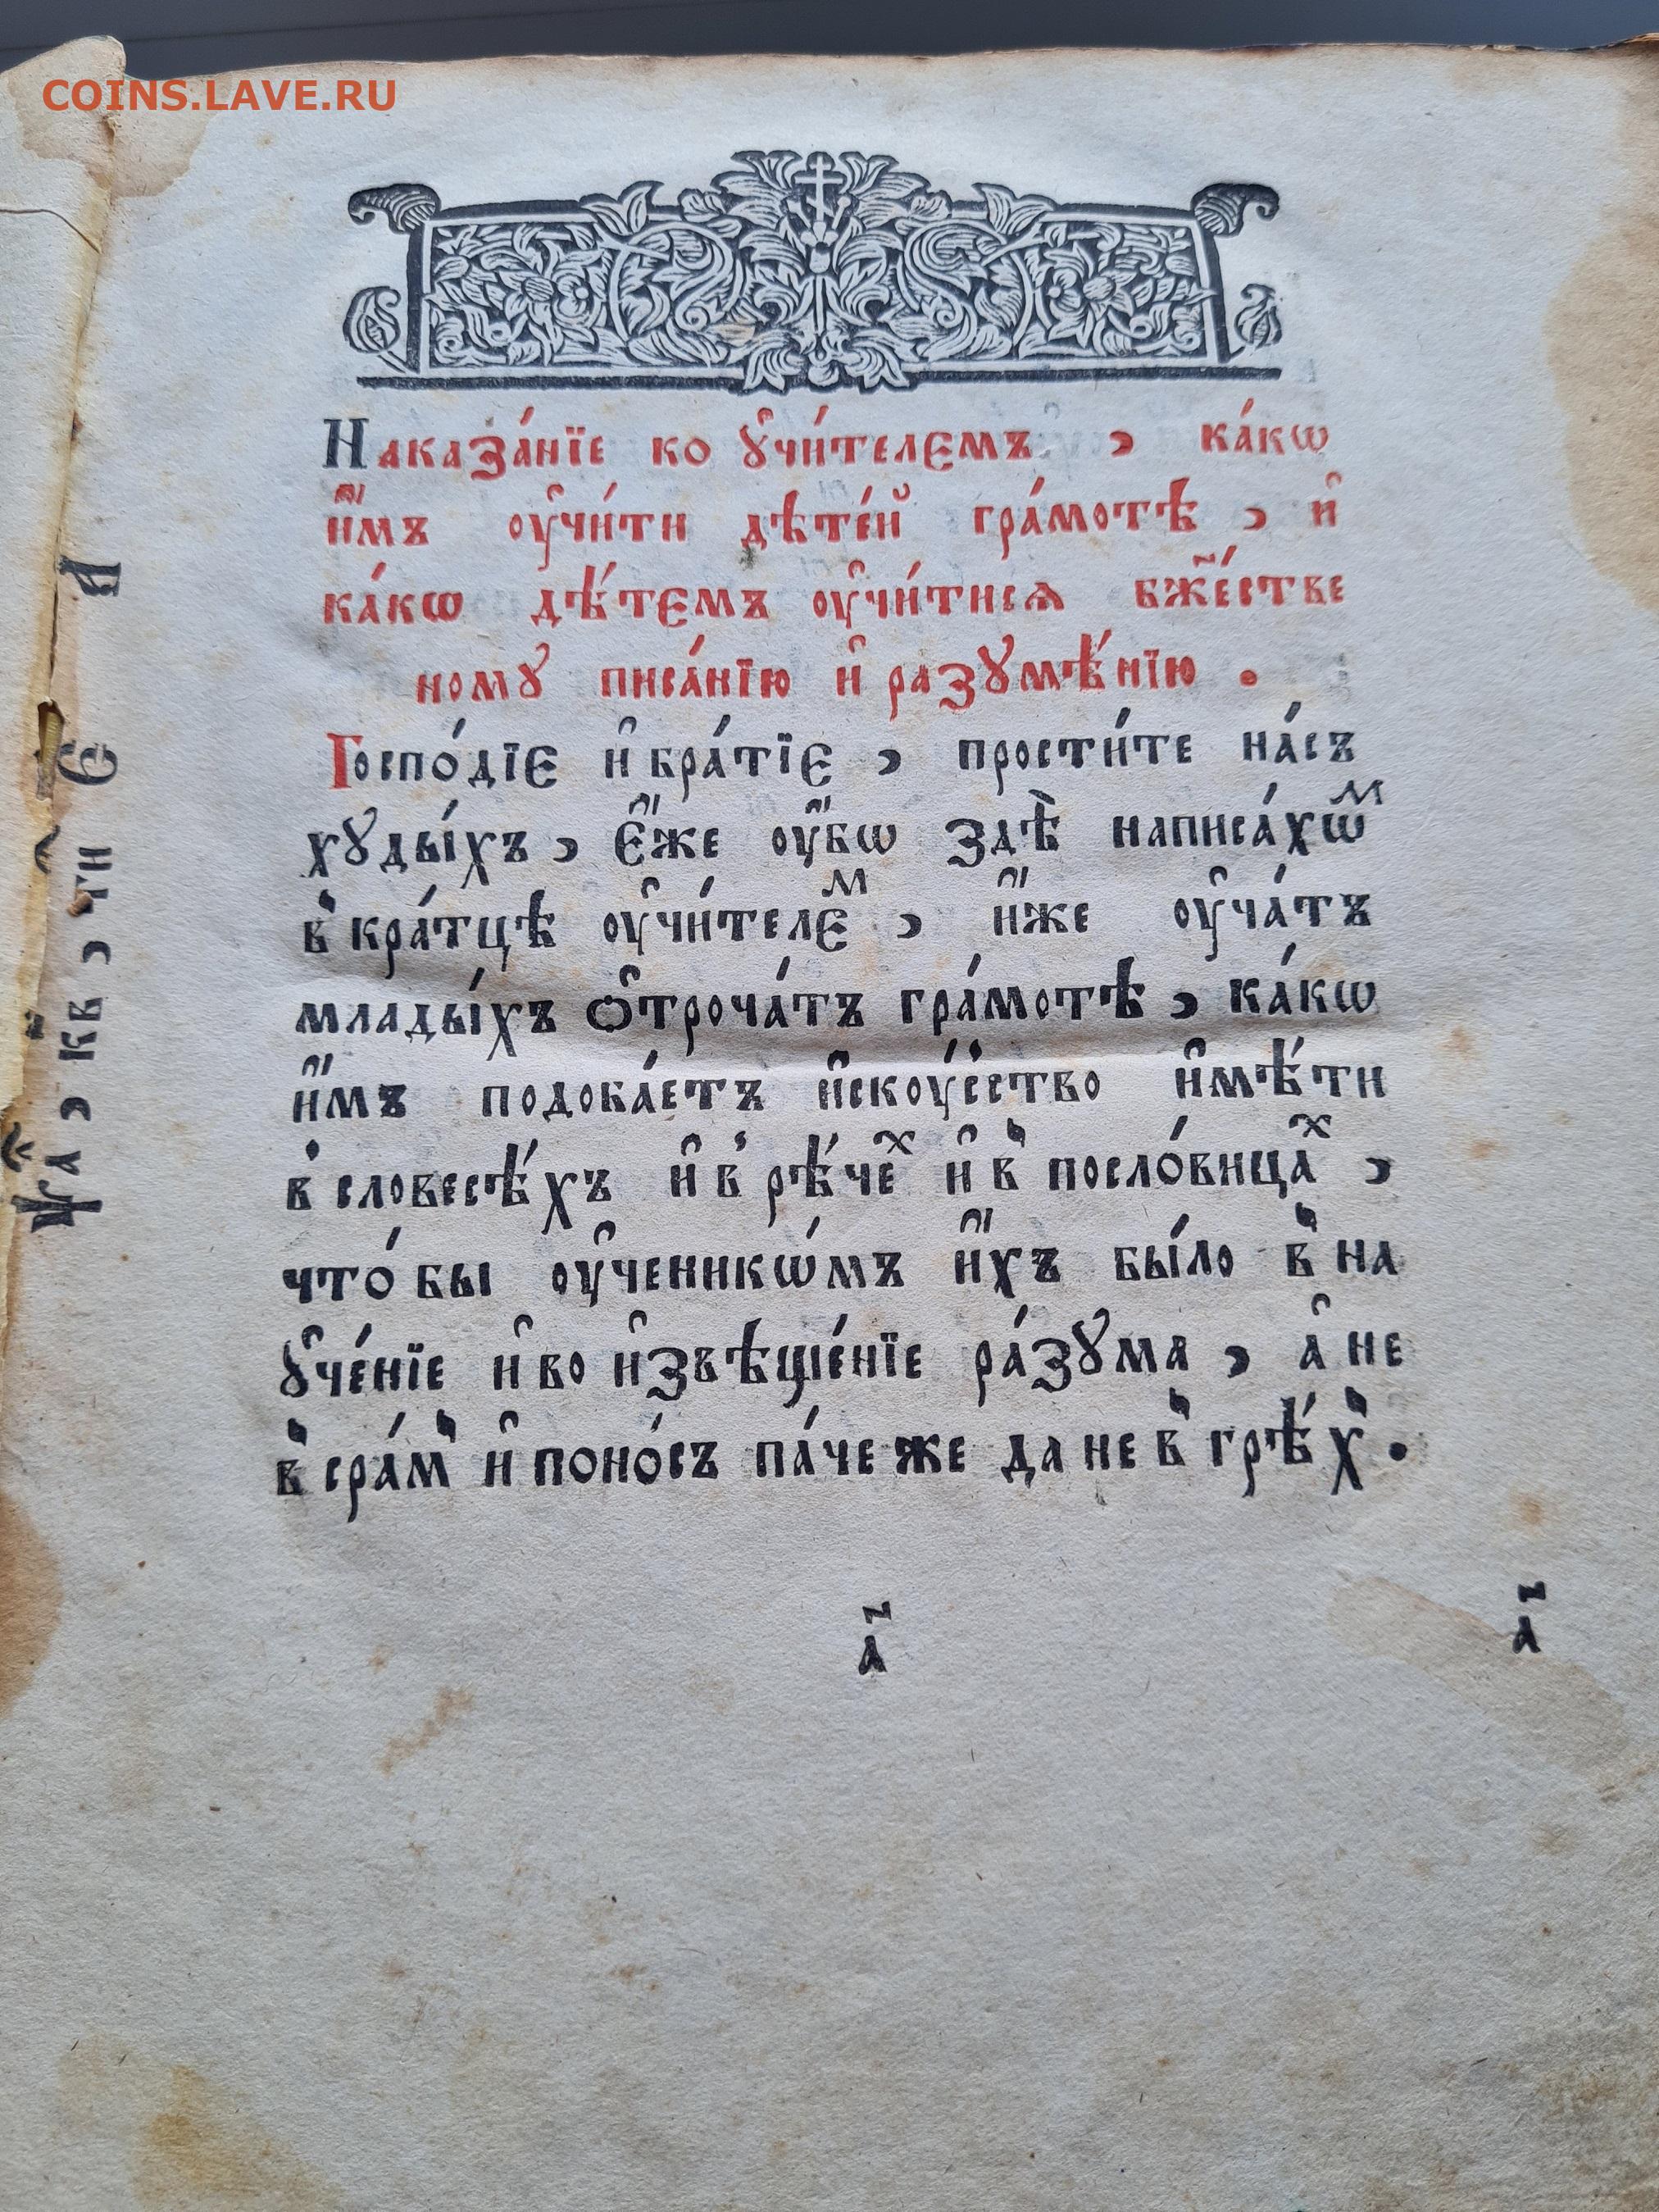 COINS.LAVE.RU
Наказа́нїе ко ꙋ҆чи́телємъ , ка́кѡ
и҆̀мъ ᲂу҆чи́ти дѣте́й гра́мотѣ , и҆
ка́кѡ дѣ́тємъ ᲂу҆чи́тисѧ бж҃е́стве
номꙋ писа́нїю и҆ разꙋмѣ́нїю .
Госпо́дїє и҆ бра́тїє , прости́те на́съ
хꙋды́хъ , є҆́же ᲂу҆́бѡ здѣ̀ написа́хѡⷨ
в̾ кра́тцѣ ᲂу҆чи́телєⷨ , и҆́же ᲂу҆ча́тъ
млады́хъ ѻ҆троча́тъ гра́мотѣ , ка́кѡ
и҆́мъ подоба́етъ и҆скᲂу́сство и҆мѣ́ти
в̾ словесѣ́хъ и҆ в̾ рѣ́чеⷯ и҆ в̾ посло́вицаⷯ ,
что́ бы ᲂу҆ченикѡ́мъ и҆́хъ бы́ло в̾ на
ꙋ҆че́нїе и҆ во и҆звѣще́нїе ра́зꙋма , а҆ не
в̾ сра́м̾ и҆ поно́съ па́че же да не в̾ грѣ́х̾ .
а҃
а҃